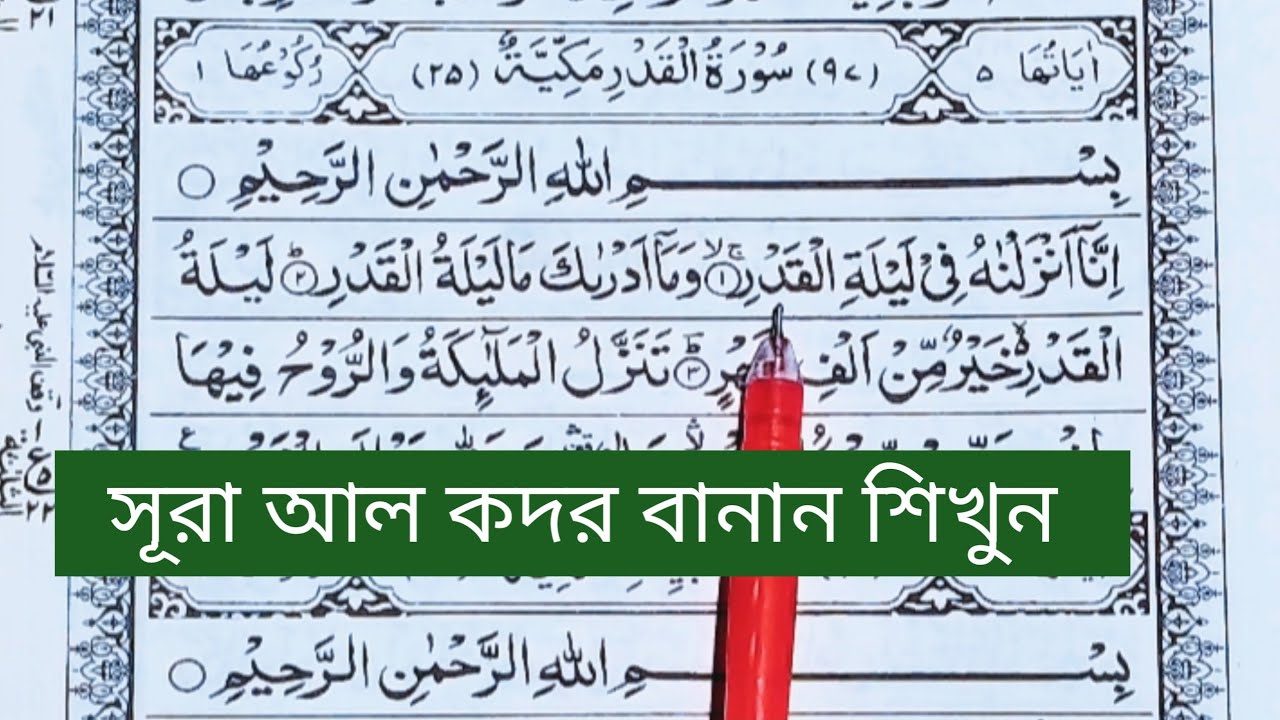 اٰيَاتُهَا ٥ (٩٧) سُوْرَةُ الْقَدْرِ مَكِّيَّةٌ (٢٥) رُكُوْعُهَا ١
بِسْمِ اللهِ الرَّحْمٰنِ الرَّحِيْمِ ○
اِنَّاۤ اَنْزَلْنٰهُ فِیْ لَيْلَةِ الْقَدْرِ ۚۖ ١ وَمَاۤ اَدْرٰىكَ مَا لَيْلَةُ الْقَدْرِ ؕ ٢ لَيْلَةُ
الْقَدْرِ ۙ۬ خَيْرٌ مِّنْ اَلْفِ ؕ ٣ تَنَزَّلُ الْمَلٰٓئِكَةُ وَالرُّوْحُ فِيْهَا
সূরা আল কদর বানান শিখুন
بِسْمِ اللهِ الرَّحْمٰنِ الرَّحِيْمِ ○